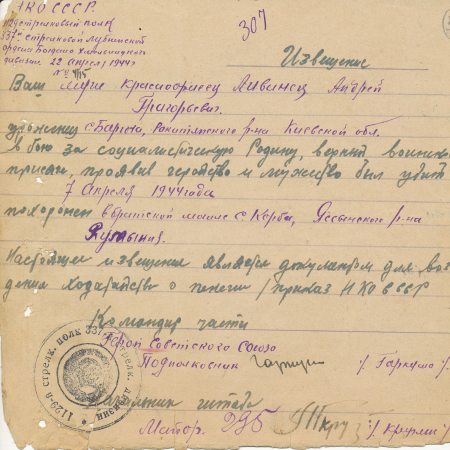 НКО СССР
307
1129 стрелковый полк
337й стрелковой Лубненской
ордена Богдана Хмельницкого
дивизии 22 апреля 1944г
Извещение
Ваш муж красноармеец Ливинец Андрей
Григорьевич
уроженец с. , Ракитянского р-на Киевской обл.
в бою за социалистическую Родину, верный воинской
присяге, проявив геройство и мужество был убит
7 Апреля 1944 года
похоронен в братской могиле с. Керби, Ясского р-на
Румыния.
Настоящее извещение является документом для воз
дения ходатайства о пенсии /приказ НКО СССР
Командир части
Герой Советского Союза
Подполковник /Гаркуша/
1129-й стрелк. полк 337-й стрелк. дивизии
Начальник штаба
Майор.